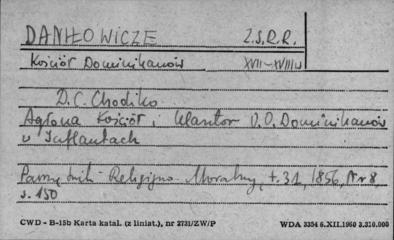 DANIŁOWICZE Z.S.R.R.
Kościół Dominikanów XVII-XVIII w
D.C. Chodźko
Agłona Kościół i Klasztor O.O. Dominikanów
w Inflantach
Pamiętnik Religijno-Moralny, t. 31, 1856, Nr 8,
s. 150
CWD - B-15b Karta katal. (z liniat.), nr 2731/ZW/P WDA 3354 6.XII.1960 3.310.000